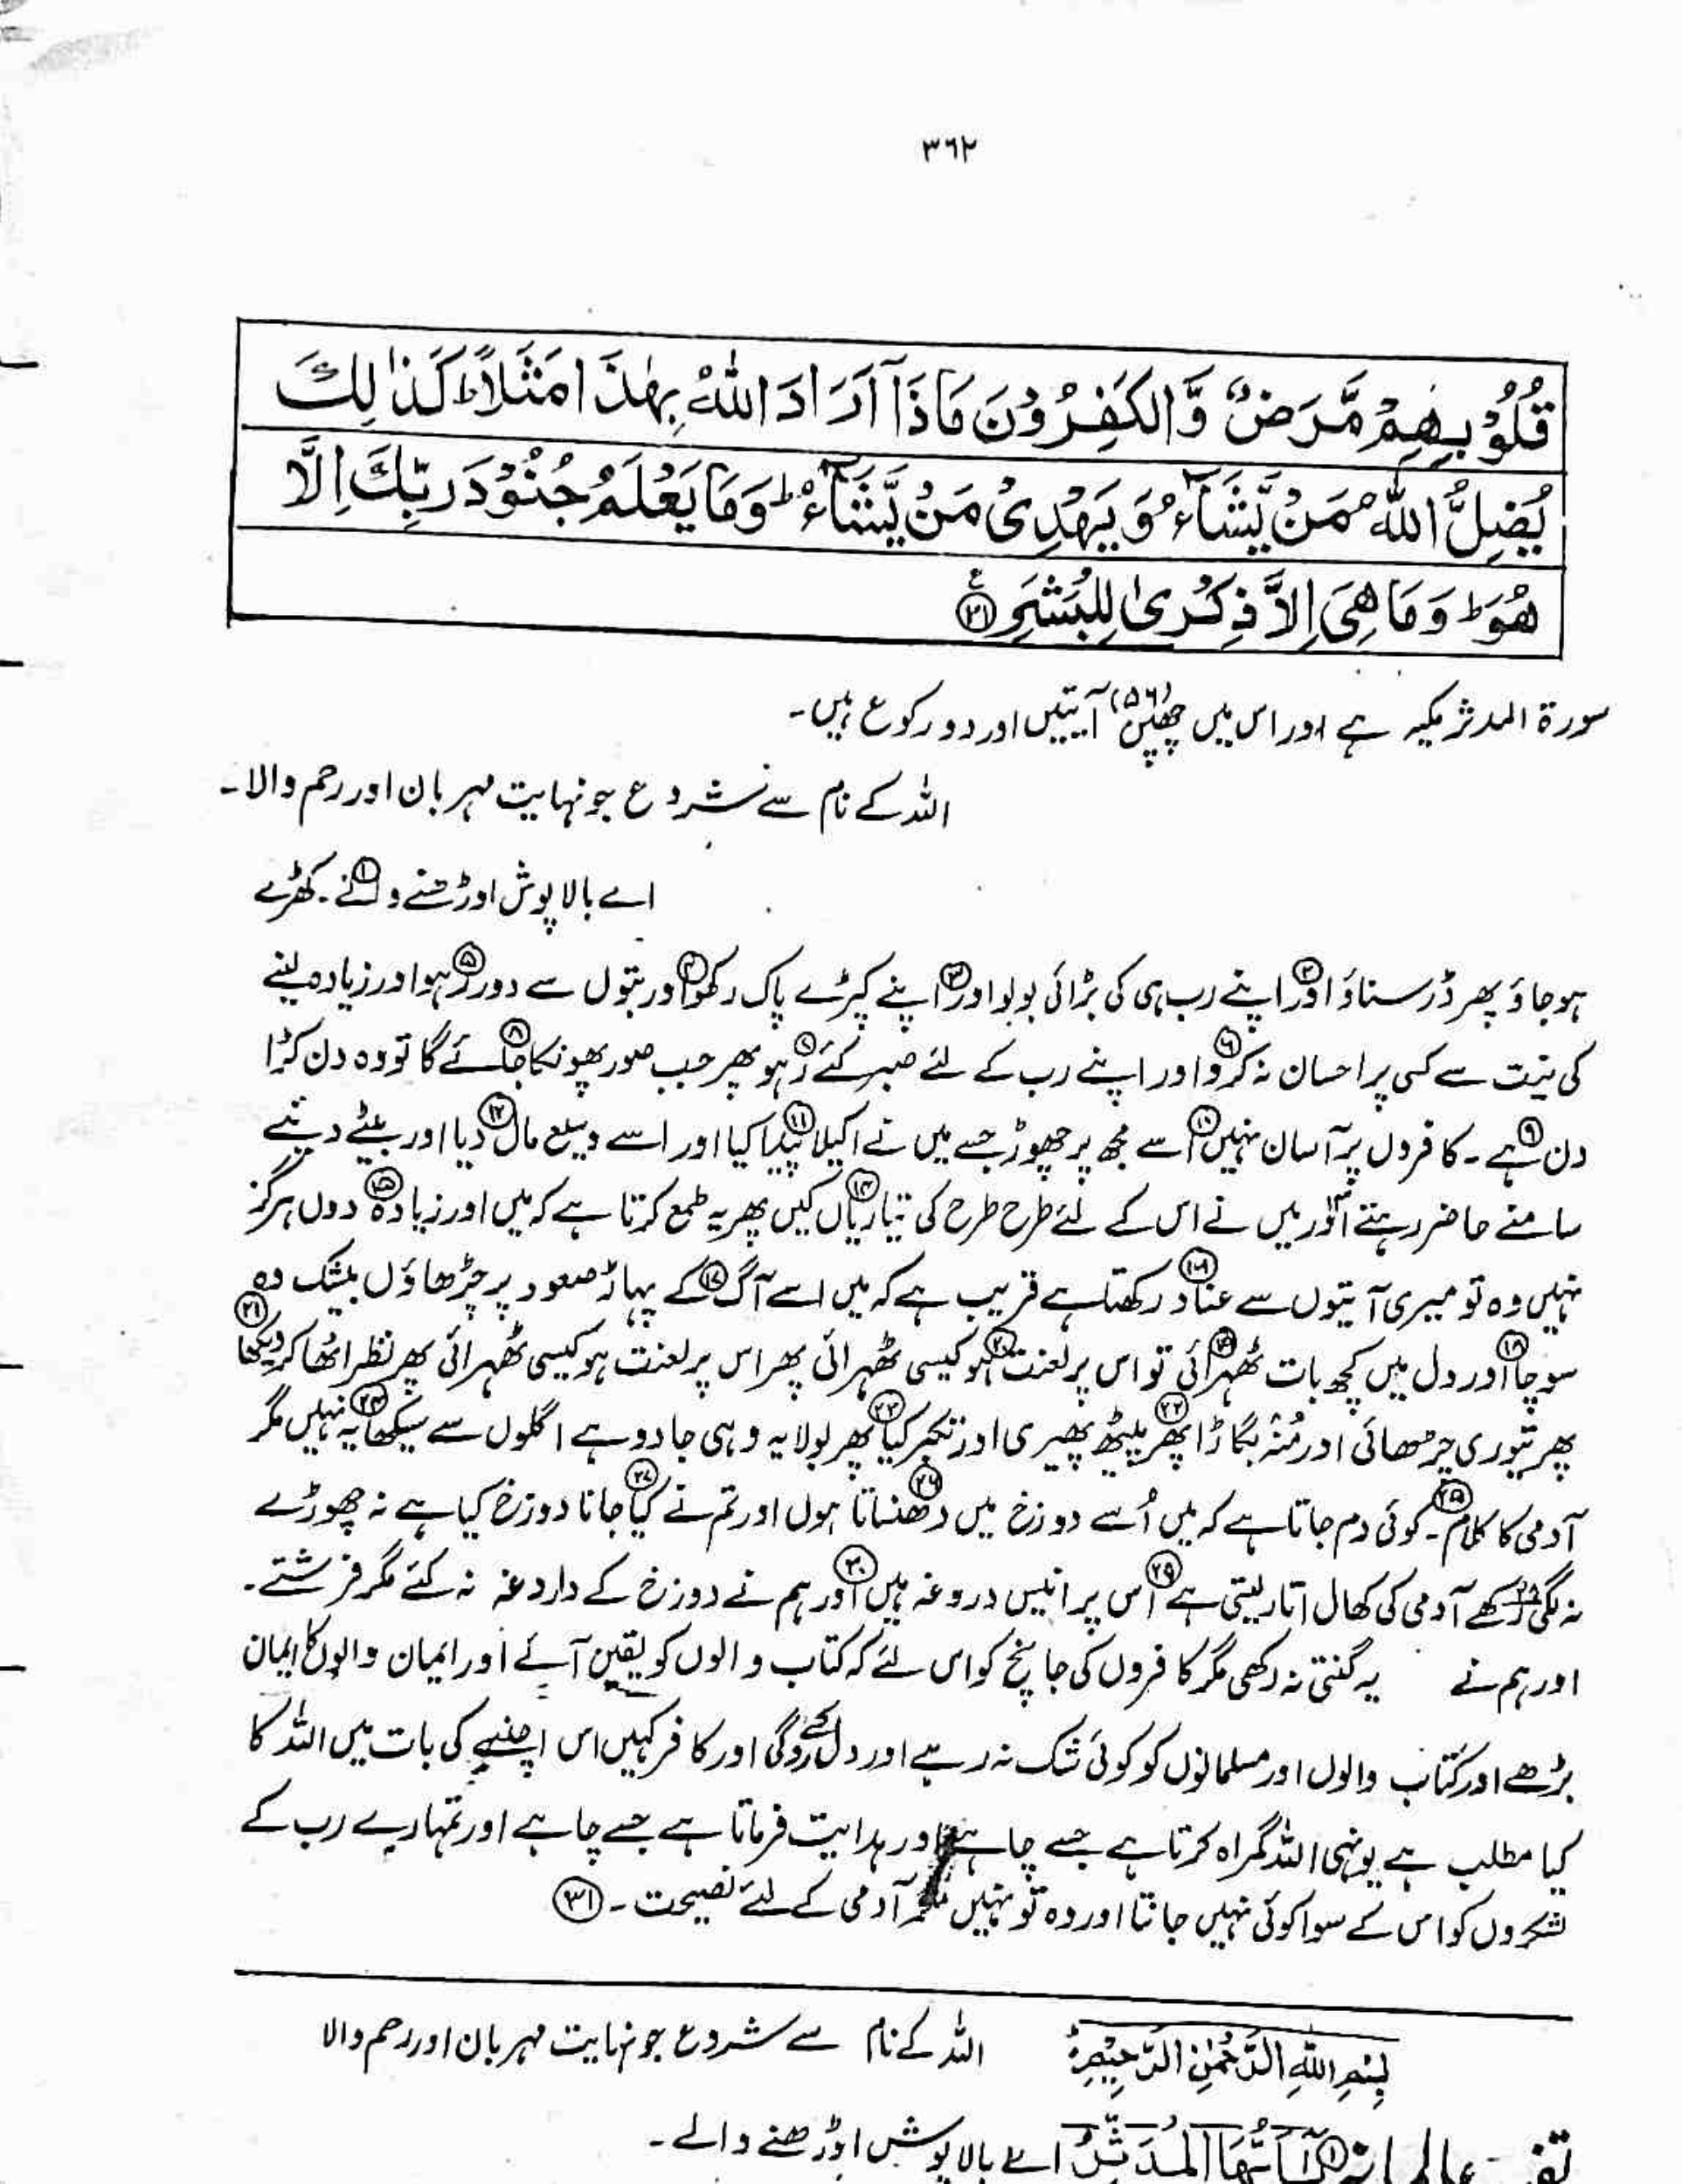 ۳۶۲
قُلُوْبِهِمْ مَّرَضٌ وَّالْكٰفِرُوْنَ مَاذَآ اَرَادَ اللّٰهُ بِهٰذَا مَثَلًا ؕ كَذٰلِكَ
يُضِلُّ اللّٰهُ مَنْ يَّشَآءُ وَيَهْدِىْ مَنْ يَّشَآءُ ؕ وَمَا يَعْلَمُ جُنُوْدَ رَبِّكَ اِلَّا
هُوَ ؕ وَمَا هِىَ اِلَّا ذِكْرٰى لِلْبَشَرِ ﴿۳۱﴾
سورۃ المدثر مکیہ ہے اور اس میں چھپن (۵۶) آیتیں اور دو رکوع ہیں۔
اللہ کے نام سے شروع جو نہایت مہربان اور رحم والا۔
اے بالا پوش اوڑھنے والے ①۔ کھڑے
ہو جاؤ پھر ڈر سناؤ ② اور اپنے رب ہی کی بڑائی بولو ③ اور اپنے کپڑے پاک رکھو ④ اور بتوں سے دور رہو ⑤ اور زیادہ لینے
کی نیت سے کسی پر احسان نہ کرو ⑥ اور اپنے رب کے لئے صبر کئے رہو ⑦ پھر جب صور پھونکا جائے گا ⑧ تو وہ دن کڑا
دن ہے ⑨۔ کافروں پر آسان نہیں ⑩ اسے مجھ پر چھوڑ جسے میں نے اکیلا پیدا کیا ⑪ اور اسے وسیع مال دیا ⑫ اور بیٹے دیئے
سامنے حاضر رہتے اور میں نے اس کے لئے طرح طرح کی تیاریاں کیں ⑭ پھر یہ طمع کرتا ہے کہ میں اور زیادہ دوں ⑮ ہرگز
نہیں وہ تو میری آیتوں سے عناد رکھتا ہے ⑯ قریب ہے کہ میں اسے آگ کے پہاڑ صعود پر چڑھاؤں ⑰ بیشک وہ
سوچا اور دل میں کچھ بات ٹھہرائی ⑱ تو اس پر لعنت ہو کیسی ٹھہرائی ⑲ پھر اس پر لعنت ہو کیسی ٹھہرائی ⑳ پھر نظر اٹھا کر دیکھا ㉑
پھر تیوری چڑھائی اور منہ بگاڑا ㉒ پھر پیٹھ پھیری اور تکبر کیا ㉓ پھر بولا یہ وہی جادو ہے اگلوں سے سیکھا ㉔ یہ نہیں مگر
آدمی کا کلام ㉕۔ کوئی دم جاتا ہے کہ میں اُسے دوزخ میں دھنساتا ہوں ㉖ اور تم نے کیا جانا دوزخ کیا ہے ㉗ نہ چھوڑے
نہ لگی رکھے ㉘ آدمی کی کھال اتار لیتی ہے ㉙ اس پر انیس دروغہ ہیں ㉚ اور ہم نے دوزخ کے داروغہ نہ کئے مگر فرشتے۔
اور ہم نے یہ گنتی نہ رکھی مگر کافروں کی جانچ کو اس لئے کہ کتاب والوں کو یقین آئے اور ایمان والوں کا ایمان
بڑھے اور کتاب والوں اور مسلمانوں کو کوئی شک نہ رہے اور دل کے روگی اور کافر کہیں اس اچنبے کی بات میں اللہ کا
کیا مطلب ہے یونہی اللہ گمراہ کرتا ہے جسے چاہے اور ہدایت فرماتا ہے جسے چاہے اور تمہارے رب کے
لشکروں کو اس کے سوا کوئی نہیں جانتا اور وہ تو نہیں مگر آدمی کے لئے نصیحت۔ ㉛
بِسْمِ اللّٰهِ الرَّحْمٰنِ الرَّحِيْمِ اللہ کے نام سے شروع جو نہایت مہربان اور رحم والا
تفسیر عالمانہ ① يٰٓاَيُّهَا الْمُدَّثِّرُ اے بالا پوش اوڑھنے والے۔